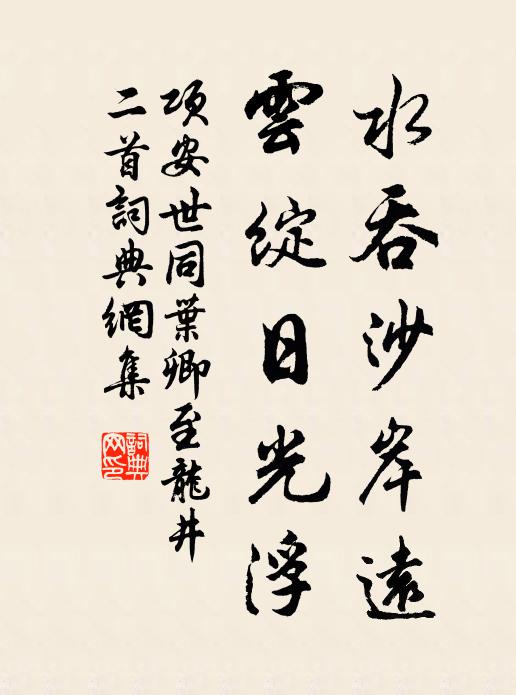 水吞沙岸遠
雲綻日光浮
項安世同葉卿至龍井
二首詞典網集
詞典網印